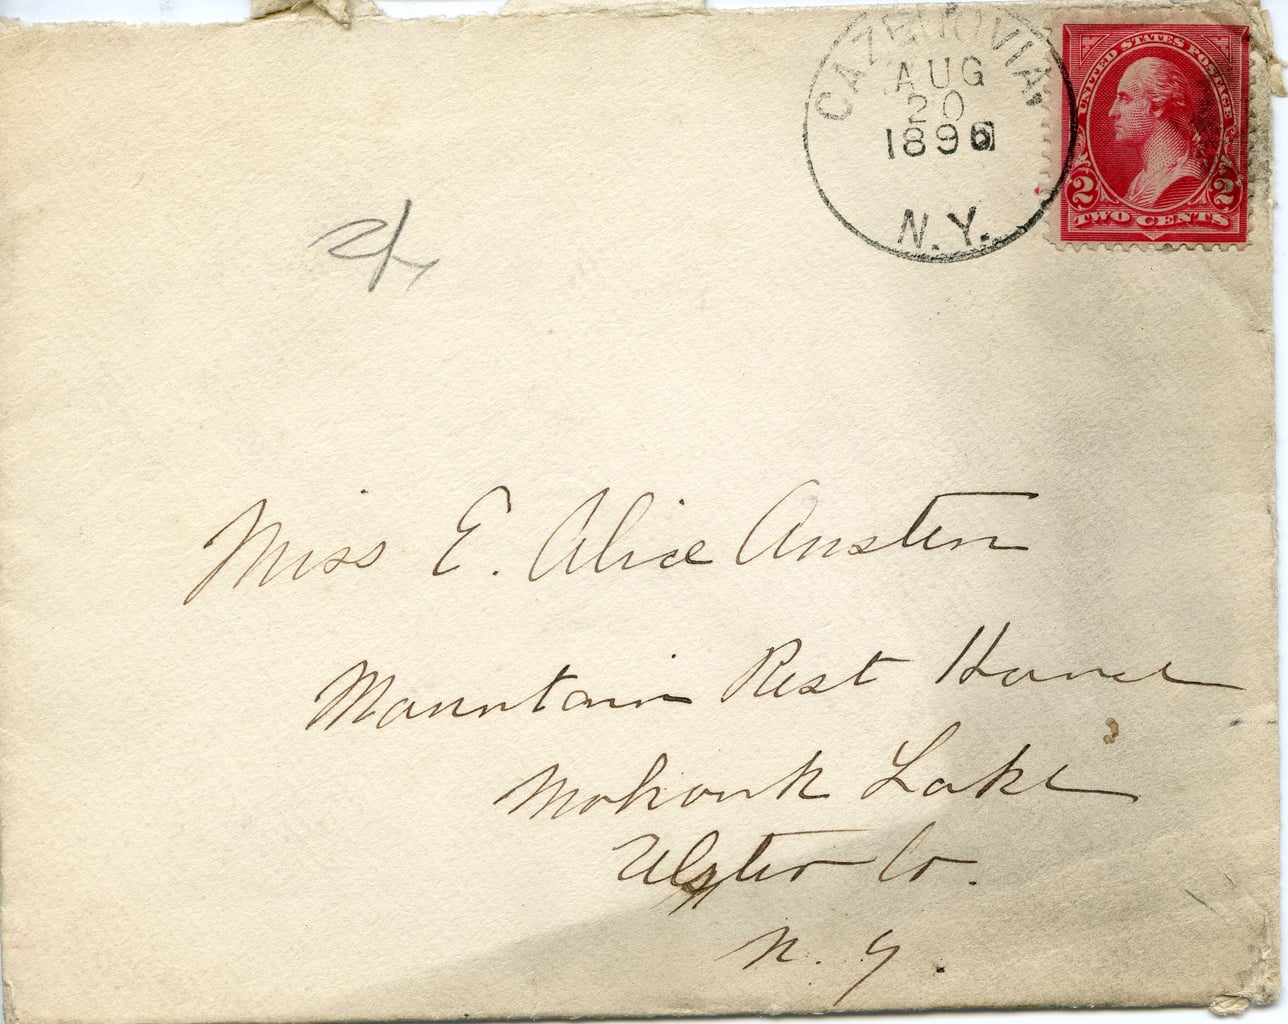 CAZENOVIA
AUG
20
1896
N.Y.
UNITED STATES POSTAGE
2 2
TWO CENTS
Miss E. Alice Austen
Mountain Rest House
Mohonk Lake
Ulster Co.
N. Y.